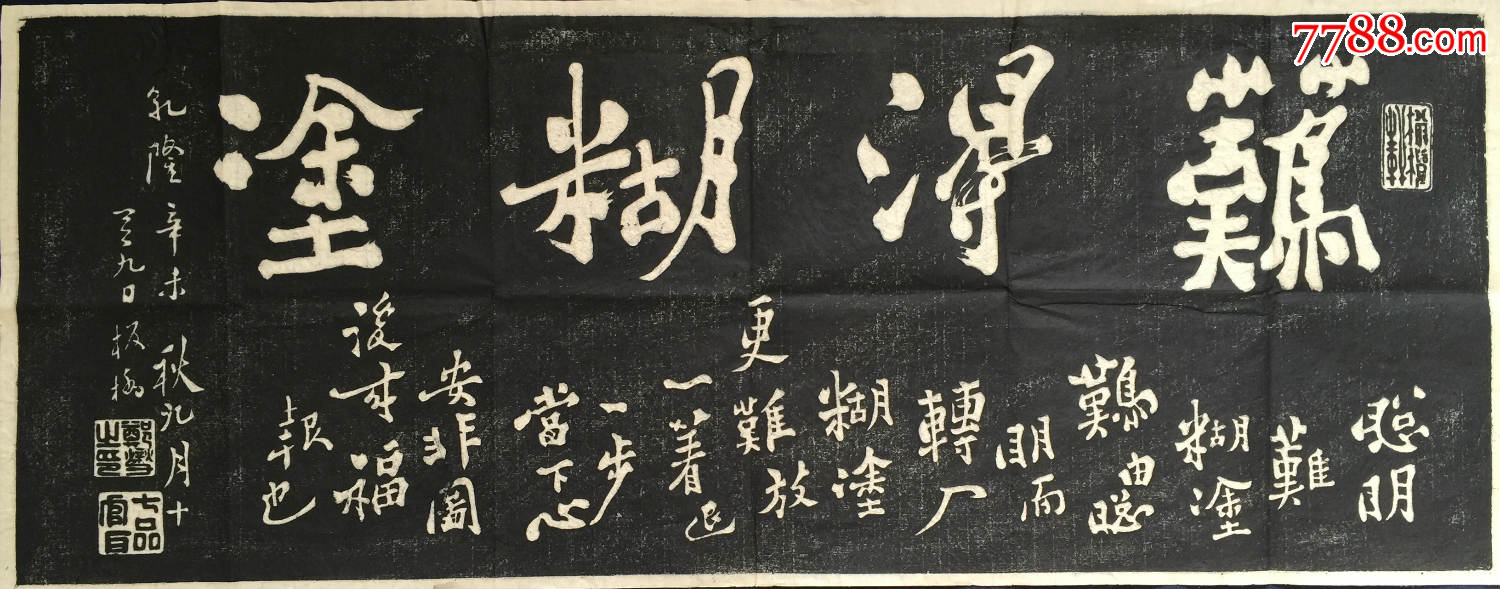 7788.com
難得糊塗
聰明
難
糊塗
難由聰
明而
轉入
糊塗
更難放
一着退
一步
當下心
安非圖
後來福
報也
乾隆辛未秋九月十
有九日板橋
鄭燮之印
七品官耳